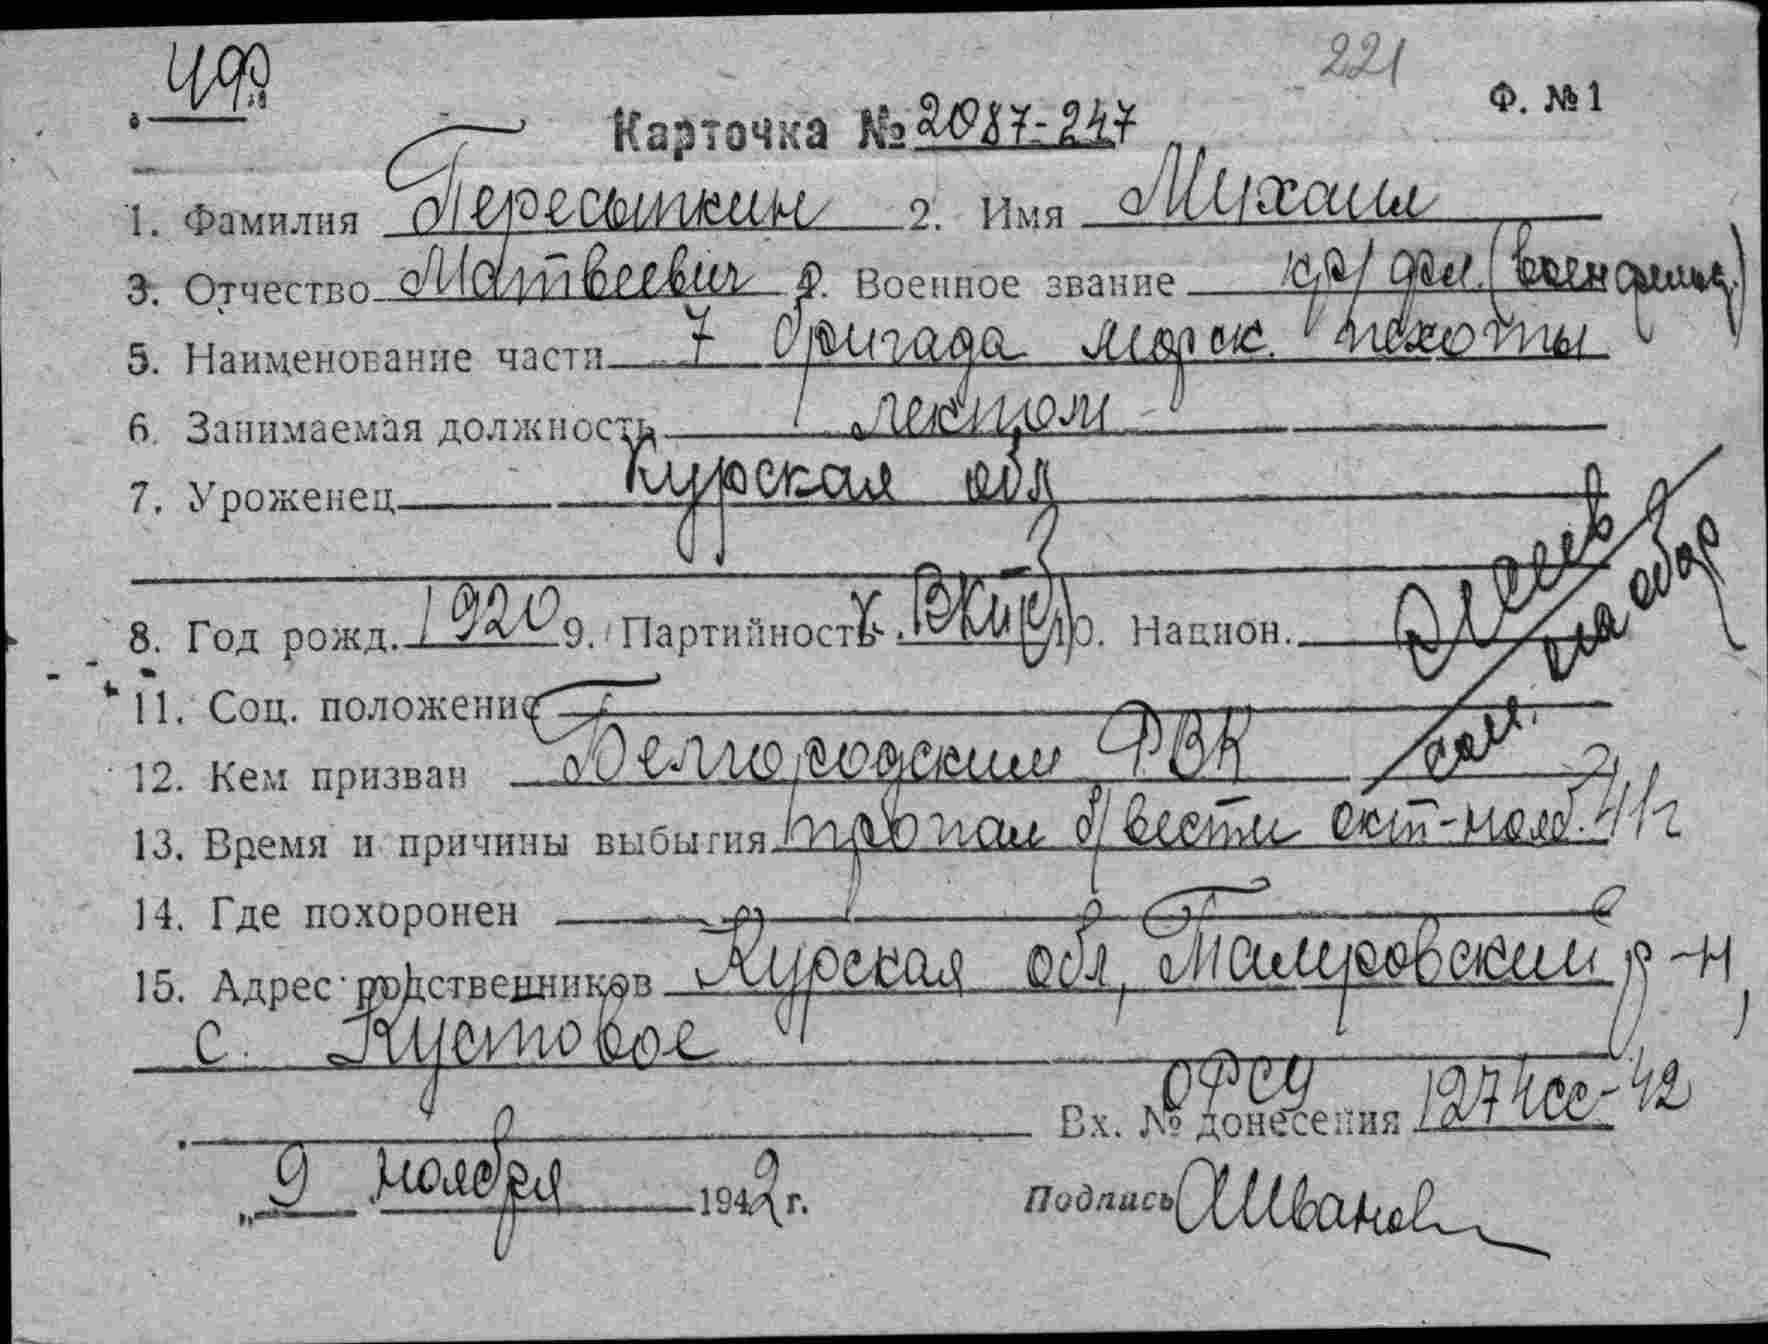 ЧФ
221
Ф. №1
Карточка № 2087-247
1. Фамилия Пересыпкин 2. Имя Михаил
3. Отчество Матвеевич 4. Военное звание кр/фл. (военфельд.)
5. Наименование части 7 бригада морск. пехоты
6. Занимаемая должность лекпом
7. Уроженец Курская обл
8. Год рожд. 1920 9. Партийность ч. ВКП(б) 10. Национ.
11. Соц. положение
12. Кем призван Белгородским РВК
13. Время и причины выбытия пропал б/вести окт-нояб. 41г
14. Где похоронен
15. Адрес родственников Курская обл, Томаровский р-н,
с. Кустовое
ОРСУ
Вх. № донесения 1274сс-42
„9 ноября 1942 г. Подпись АИванов